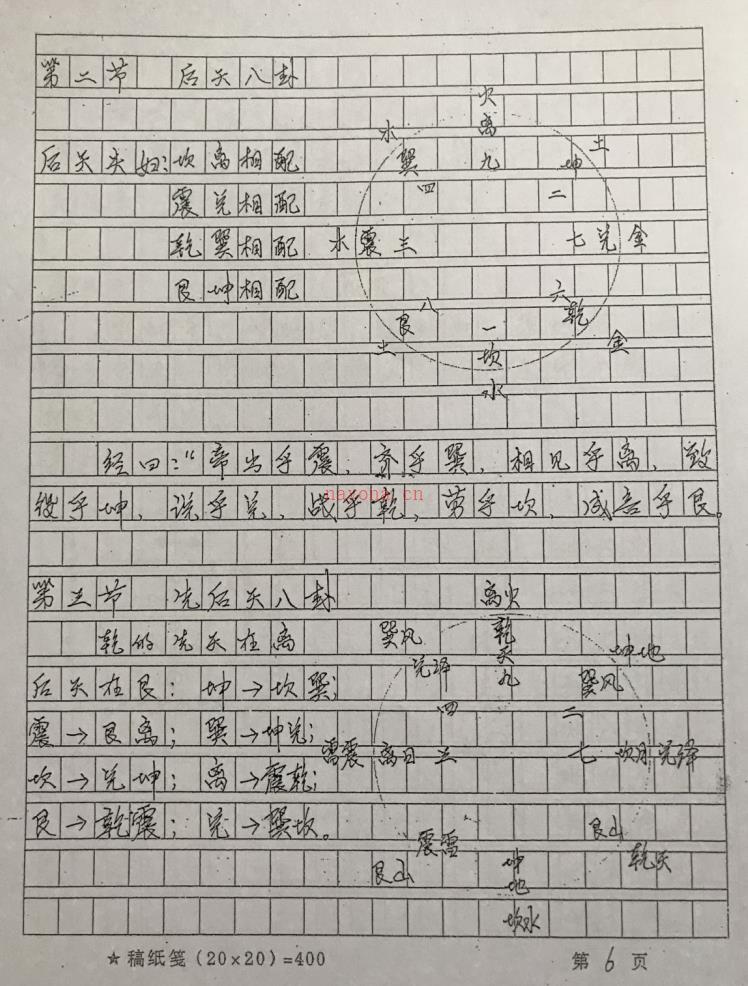 第二节 后天八卦
火
离
九
木
巽
四
土
坤
二
后天夫妇:坎离相配
震兑相配
乾巽相配
艮坤相配
木震三
七兑金
八
艮
土
六
乾
金
一
坎
水
经曰:“帝出乎震,齐乎巽,相见乎离,致
役乎坤,说乎兑,战乎乾,劳乎坎,成言乎艮。
nayona.cn
第三节 先后天八卦
乾的先天在离
后天在艮:坤→坎巽;
震→艮离;巽→坤兑;
坎→兑坤;离→震乾;
艮→乾震;兑→巽坎。
离火
乾
天
九
巽风
兑泽
四
坤地
巽风
二
雷震 离日 三
七 坎月兑泽
震雷
艮山
艮山
乾天
坤
地
坎水
★稿纸笺(20×20)=400
第 6 页